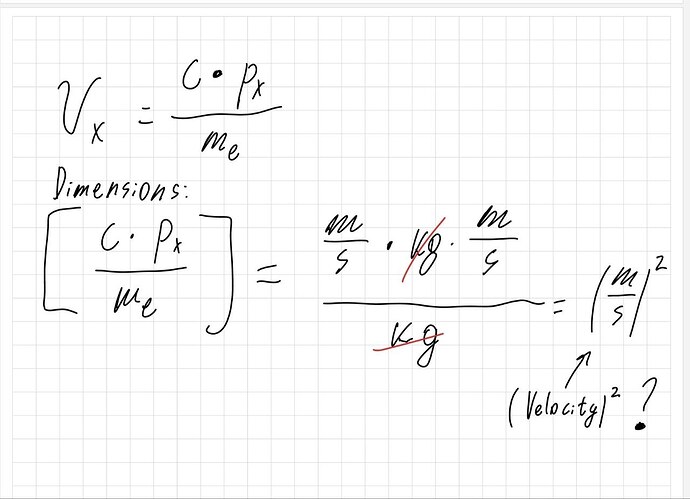 V_x = (c · p_x) / m_e
Dimensions:
[(c · p_x) / m_e] = (m/s · kg · m/s) / kg = (m/s)^2
(Velocity)^2 ?